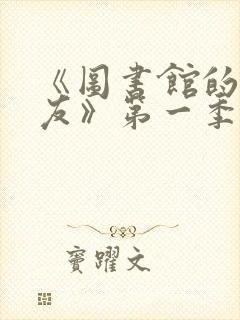 《圖書館的
友》第一季
竇躍文